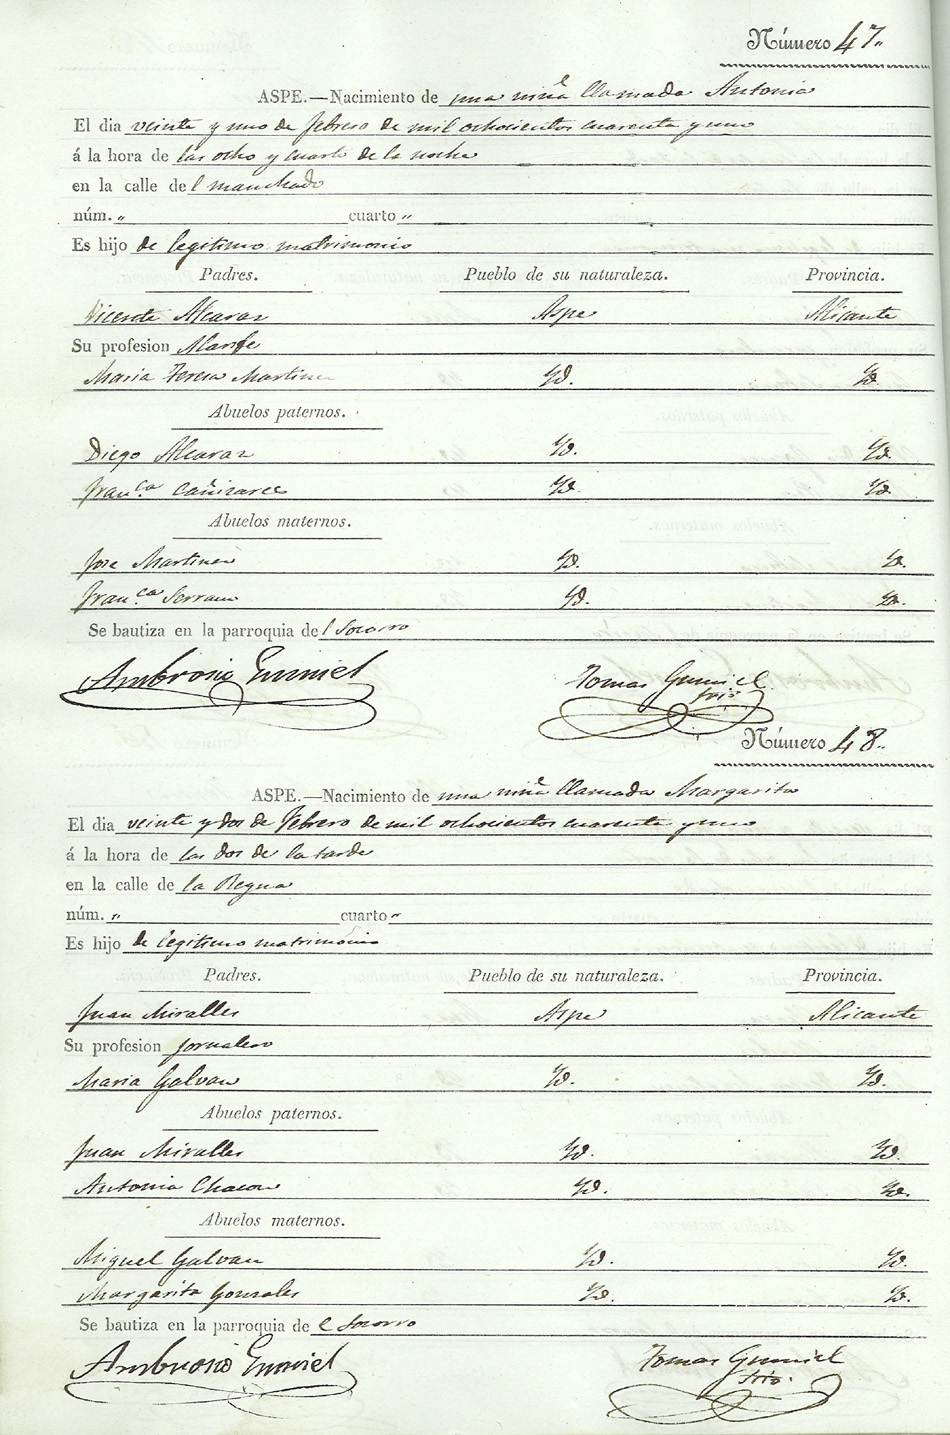 Número 47..
ASPE.—Nacimiento de una niña llamada Antonia
El dia veinte y uno de febrero de mil ochocientos cuarenta y uno
á la hora de las ocho y cuarto de la noche
en la calle del manchado
núm. „ cuarto „
Es hijo de legitimo matrimonio
Padres. Pueblo de su naturaleza. Provincia.
Vicente Alcaraz Aspe Alicante
Su profesion
Maria Teresa Martinez Yd. Yd.
Abuelos paternos.
Diego Alcaraz Yd. Yd.
Franca Cañizares Yd. Yd.
Abuelos maternos.
Jose Martinez Yd. Yd.
Franca Serrano Yd. Yd.
Se bautiza en la parroquia del Socorro
Ambrosio Gumiel Tomas Gumiel
Srio
Número 48..
ASPE.—Nacimiento de una niña llamada Margarita
El dia veinte y dos de febrero de mil ochocientos cuarenta y uno
á la hora de las dos de la tarde
en la calle de la Regua
núm. „ cuarto „
Es hijo de legitimo matrimonio
Padres. Pueblo de su naturaleza. Provincia.
Juan Miralles Aspe Alicante
Su profesion jornalero
Maria Galvan Yd. Yd.
Abuelos paternos.
Juan Miralles Yd. Yd.
Antonia Chacon Yd. Yd.
Abuelos maternos.
Miguel Galvan Yd. Yd.
Margarita Gonzales Yd. Yd.
Se bautiza en la parroquia de el Socorro
Ambrosio Gumiel Tomas Gumiel
Srio.